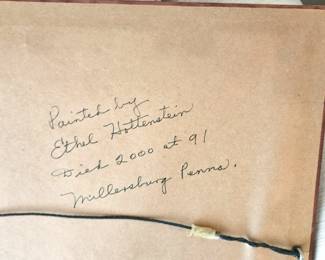 Painted by
Ethel Hottenstein
Died 2000 at 91
Millersburg Penna.